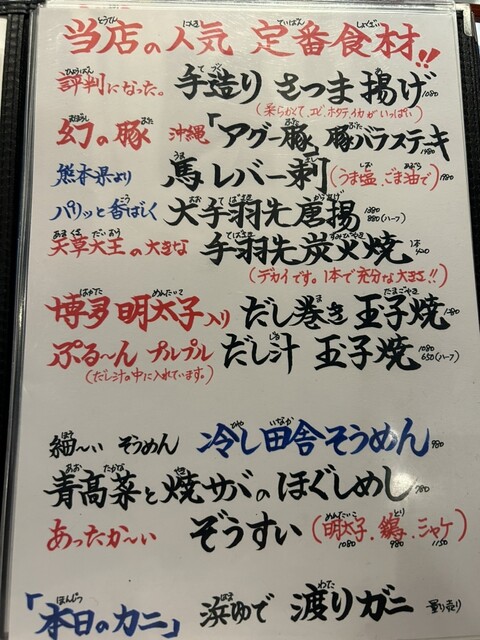 当店の人気 定番食材!!
評判になった。手造り さつま揚げ 1080
(柔らかくて、エビ、ホタテ、イカがいっぱい)
幻の豚 沖縄「アグー豚」豚バラステーキ 1480
熊本県より 馬レバー刺(うま塩、ごま油で) 980
パリッと香ばしく 大手羽先唐揚 1380 880(ハーフ)
天草大王の大きな 手羽先炭火焼 1本
(デカイです。1本で充分な大きさ!!)
博多明太子入り だし巻き玉子焼
ぷる〜ん プルプル だし汁 玉子焼 1080 650(ハーフ)
(だし汁の中に入れています。)
細〜い そうめん 冷し田舎そうめん 980
青高菜と焼サバのほぐしめし 780
あったか〜い ぞうすい(明太子、鶏、シャケ)
1080 980 1150
「本日のカニ」 浜ゆで 渡りガニ 量り売り